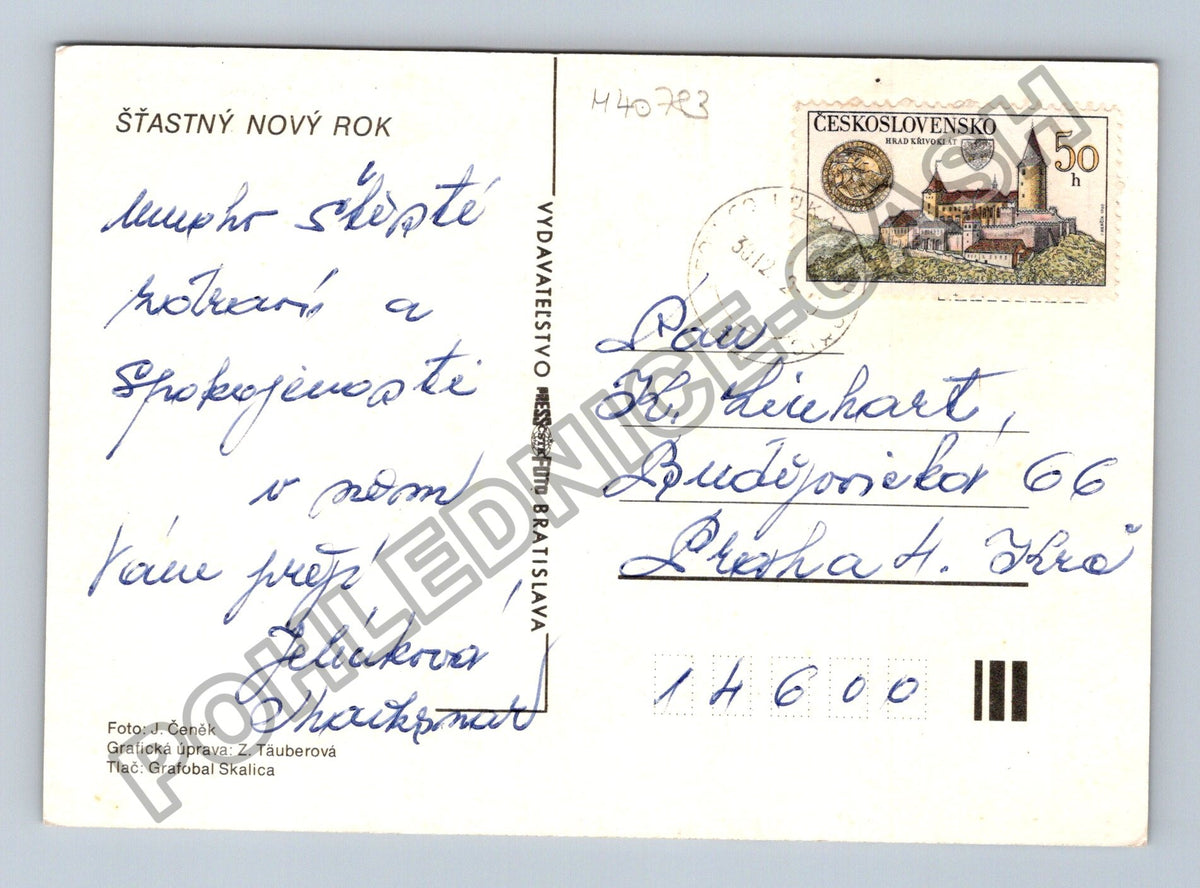 ŠŤASTNÝ NOVÝ ROK
mnoho štěstí
zdraví a
spokojenosti
v novém
Vám přejí
Jelínková
Foto: J. Čeněk
Grafická úprava: Z. Täuberová
Tlač: Grafobal Skalica
VYDAVATEĽSTVO PRESSFOTO BRATISLAVA
ČSTK
M40793
ČESKOSLOVENSKO
HRAD KŘIVOKLÁT
50
h
30.12
Pan
K. Linhart,
Budějovická 66
Praha 4. Krč
14600
POHLEDNICE-GASH